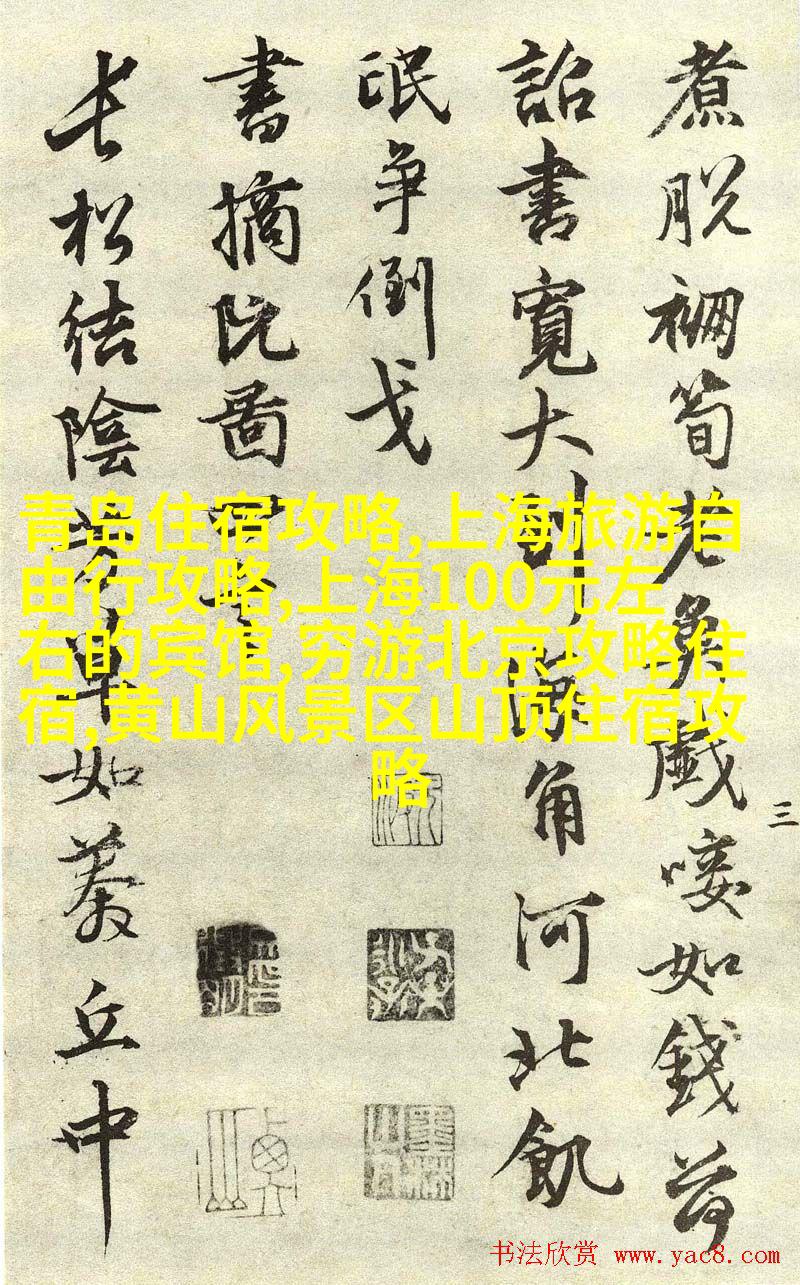 煮脱襧笥老兵戲嘍如錢荷
詔書寬大到海角河北飢
氓争倒戈
書摘阮啚
長松結陰若草如綦丘中
三
青岛住宿攻略,上海旅游自
由行攻略,上海100元左
右的宾馆,穷游北京攻略住
宿,黄山风景区山顶住宿攻
略
书法欣赏 www.yac8.com